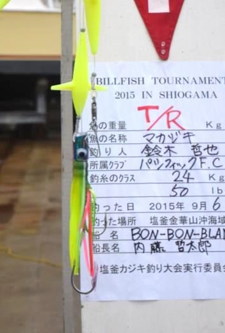 BILLFISH TOURNAMENT
2015 IN SHIOGAMA
T/R
魚の重量 Kg
魚の名称 マカヅキ
釣り人 鈴木 哲也
所属クラブ パシフィックF.C
釣糸のクラス 24 Kg
50 lb
釣った日 2015年 9月 6
釣った場所 塩釜金華山沖海域
船名 BON-BON-BLAN
船長名 内藤 哲太郎
塩釜カジキ釣り大会実行委員会